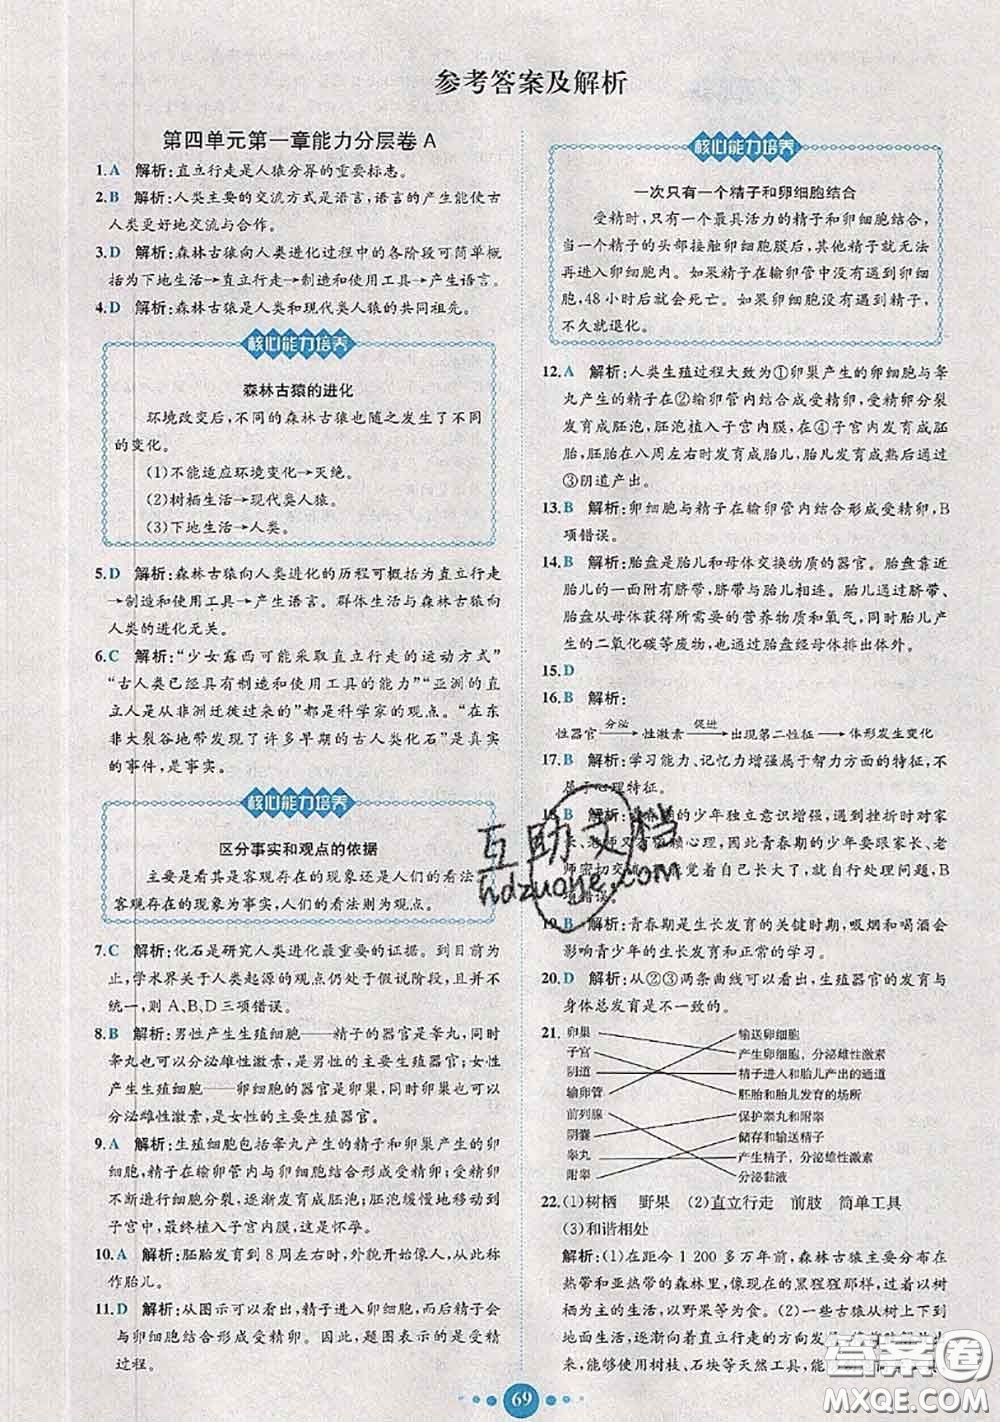 参考答案及解析
第四单元第一章能力分层卷 A
1.A 解析:直立行走是人猿分界的重要标志。
2.B 解析:人类主要的交流方式是语言,语言的产生能使古
人类更好地交流与合作。
3.D 解析:森林古猿向人类进化过程中的各阶段可简单概
括为下地生活→直立行走→制造和使用工具→产生语言。
4.D 解析:森林古猿是人类和现代类人猿的共同祖先。
核心能力培养
森林古猿的进化
环境改变后,不同的森林古猿也随之发生了不同
的变化。
(1)不能适应环境变化→灭绝。
(2)树栖生活→现代类人猿。
(3)下地生活→人类。
5.D 解析:森林古猿向人类进化的历程可概括为直立行走
→制造和使用工具→产生语言。群体生活与森林古猿向
人类的进化无关。
6.C 解析:“少女露西可能采取直立行走的运动方式”
“古人类已经具有制造和使用工具的能力”“亚洲的直
立人是从非洲迁徙过来的”都是科学家的观点。“在东
非大裂谷地带发现了许多早期的古人类化石”是真实
的事件,是事实。
核心能力培养
区分事实和观点的依据
主要是看其是客观存在的现象还是人们的看法,
客观存在的现象为事实,人们的看法则为观点。
7.C 解析:化石是研究人类进化最重要的证据。到目前为
止,学术界关于人类起源的观点仍处于假说阶段,且并不
统一,则 A、B、D 三项错误。
8.B 解析:男性产生生殖细胞——精子的器官是睾丸,同时
睾丸也可以分泌雄性激素,是男性的主要生殖器官;女性
产生生殖细胞——卵细胞的器官是卵巢,同时卵巢也可以
分泌雌性激素,是女性的主要生殖器官。
9.A 解析:生殖细胞包括睾丸产生的精子和卵巢产生的卵
细胞,精子在输卵管内与卵细胞结合形成受精卵。受精卵
经过细胞分裂,逐渐发育成胚泡;胚泡缓慢地移动到
子宫中,最终植入子宫内膜,这就是怀孕。
10.A 解析:胚胎发育到8周左右时,外貌开始像人,从此称
作胎儿。
11.D 解析:从图示可以看出,精子进入卵细胞,而后精子
与卵细胞结合形成受精卵。因此,题图表示的是受精
过程。
核心能力培养
一次只有一个精子和卵细胞结合
受精时,只有一个最具活力的精子和卵细胞结合,
当一个精子的头部接触卵细胞膜后,其他精子就无法
再进入卵细胞。如果精子在输卵管中没有遇到卵细
胞,48 小时后就会死亡。如果卵细胞没有遇到精子,
不久就退化。
12.A 解析:人类生殖过程大致为①卵巢产生的卵细胞与睾
丸产生的精子在②输卵管内结合成受精卵,受精卵分裂
成胚泡,胚泡植入子宫内膜,在④子宫内发育成胚
胎,胚胎在八周左右时发育成胎儿,胎儿发育成熟后通过
③阴道产出。
13.B 解析:卵细胞与精子在输卵管内结合形成受精卵,B
项错误。
14.B 解析:胎盘是胎儿和母体交换物质的器官。胎盘靠近
胎儿的一面附有脐带,脐带与胎儿相连。胎儿通过脐带、
胎盘从母体获得所需要的营养物质和氧气,同时胎儿产
生的二氧化碳等废物,也通过胎盘经母体排出体外。
15.D
16.B 解析:
性器官 分泌→ 性激素 促进→ 出现第二性征→体形发生变化
17.B 解析:学习能力、记忆力增强属于智力方面的特征,不
属于心理特征。
18.B 解析:青春期的少年独立意识增强,遇到挫折时对家
长、老师又有依赖心理,所以青春期的少年要跟家长、老
师密切交流,不能觉着自己已长大,处处自行处理问题,B
项错误。
19.B 解析:青春期是生长发育的关键时期,吸烟和喝酒会
影响青少年的生长发育和正常的学习。
20.D 解析:从②③两条曲线可以看出,生殖器官的发育与
身体总发育是不一致的。
21. 卵巢 输送卵细胞
子宫 产生卵细胞,分泌雌性激素
阴道 精子进入和胎儿产出的通道
输卵管 胚胎和胎儿发育的场所
前列腺 保护睾丸和附睾
阴囊 储存和输送精子
睾丸 产生精子,分泌雄性激素
附睾 分泌黏液
22.(1)树栖 野果 (2)直立行走 前肢 简单工具
(3)和谐相处
解析:(1)在距今 1 200 多万年前,森林古猿主要分布在
热带和亚热带的森林里,像现在的黑猩猩那样,过着以树
栖为主的生活,以野果等为食。(2)一些古猿从树上下到
地面生活,逐渐向着直立行走的方向发展,前肢解放出
来,能够使用树枝、石块等天然工具,能
69
互助文档
hdzuoye.com
答案圈
MXQE.COM